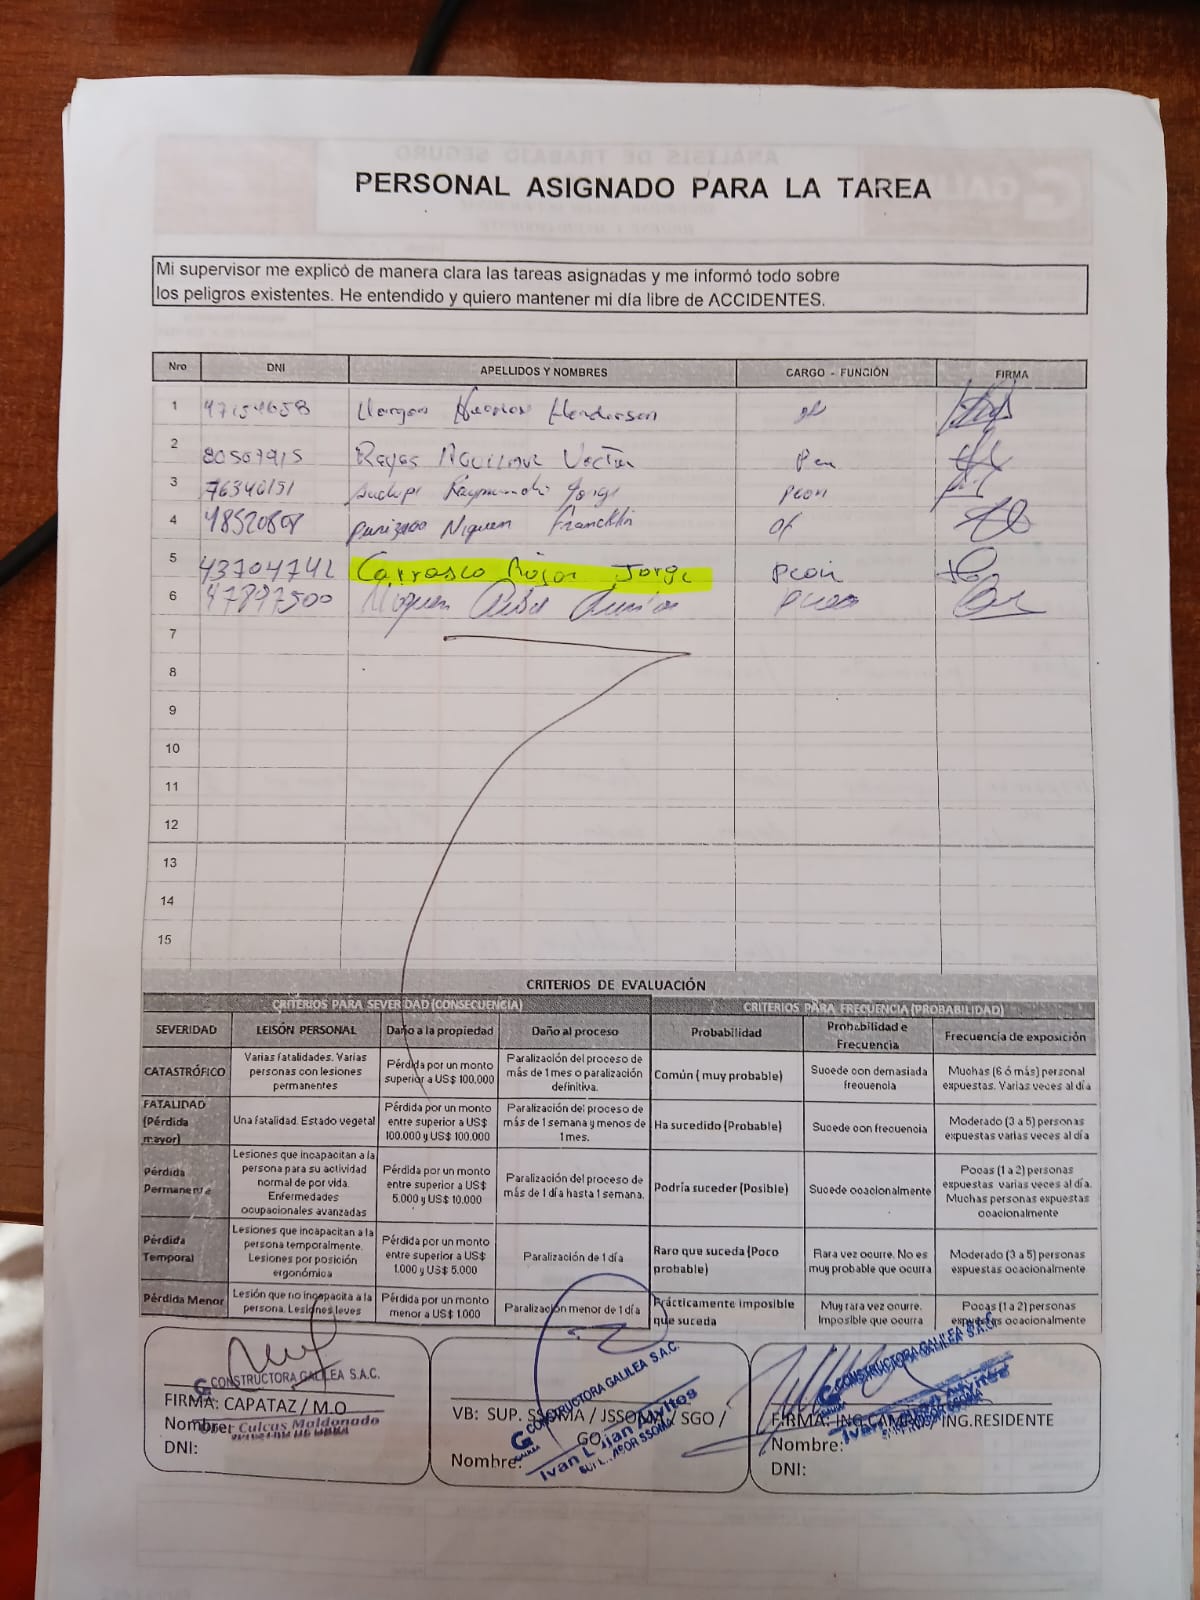 PERSONAL ASIGNADO PARA LA TAREA
Mi supervisor me explicó de manera clara las tareas asignadas y me informó todo sobre
los peligros existentes. He entendido y quiero mantener mi día libre de ACCIDENTES.
Nro DNI APELLIDOS Y NOMBRES CARGO - FUNCIÓN FIRMA
1 47154658 Henderson
2 80567915 Reyes Aguilar Victor
3 76346151 Raymundo Jorge peon
4 48520808 Niquen Francklin of
5 43704742 Carrasco Rojas Jorge peon
6 47897500 Niquen
7
8
9
10
11
12
13
14
15
CRITERIOS DE EVALUACIÓN
CRITERIOS PARA SEVERIDAD (CONSECUENCIA) CRITERIOS PARA FRECUENCIA (PROBABILIDAD)
SEVERIDAD LEISÓN PERSONAL Daño a la propiedad Daño al proceso Probabilidad Probabilidad e Frecuencia Frecuencia de exposición
CATASTRÓFICO Varias fatalidades. Varias personas con lesiones permanentes Pérdida por un monto superior a US$ 100.000 Paralización del proceso de más de 1 mes o paralización definitiva. Común ( muy probable) Sucede con demasiada frecuencia Muchas (6 ó más) personal expuestas. Varias veces al día
FATALIDAD (Pérdida mayor) Una fatalidad. Estado vegetal Pérdida por un monto entre superior a US$ 100.000 y US$ 100.000 Paralización del proceso de más de 1 semana y menos de 1 mes. Ha sucedido (Probable) Sucede con frecuencia Moderado (3 a 5) personas expuestas varias veces al día
Pérdida Permanente Lesiones que incapacitan a la persona para su actividad normal de por vida. Enfermedades ocupacionales avanzadas Pérdida por un monto entre superior a US$ 5.000 y US$ 10.000 Paralización del proceso de más de 1 día hasta 1 semana. Podría suceder (Posible) Sucede ocacionalmente Pocas (1 a 2) personas expuestas varias veces al día. Muchas personas expuestas ocacionalmente
Pérdida Temporal Lesiones que incapacitan a la persona temporalmente. Lesiones por posición ergonómica Pérdida por un monto entre superior a US$ 1.000 y US$ 5.000 Paralización de 1 día Raro que suceda (Poco probable) Rara vez ocurre. No es muy probable que ocurra Moderado (3 a 5) personas expuestas ocacionalmente
Pérdida Menor Lesión que no incapacita a la persona. Lesiones leves Pérdida por un monto menor a US$ 1.000 Paralización menor de 1 día Prácticamente imposible que suceda Muy rara vez ocurre. Imposible que ocurra Pocas (1 a 2) personas expuestas ocacionalmente
CONSTRUCTORA GALILEA S.A.C.
FIRMA: CAPATAZ / M.O
Nombre: Culcas Maldonado
DNI:
CONSTRUCTORA GALILEA S.A.C.
VB: SUP. SSOMA / JSSOMA / SGO /
GO
Nombre: Ivan
CONSTRUCTORA GALILEA S.A.C.
FIRMA: ING.CAMPO / ING.RESIDENTE
Nombre:
DNI: